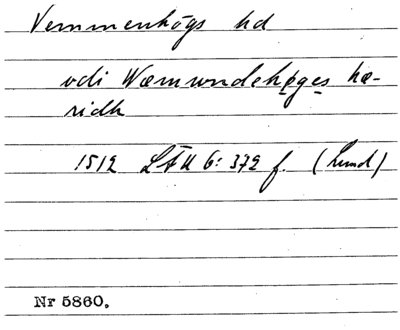 Vemmenhögs hd
udi Wæmundehøges hæ-
ridh
1512 LÄU 6: 372 f. (Lund)
Nr 5860.